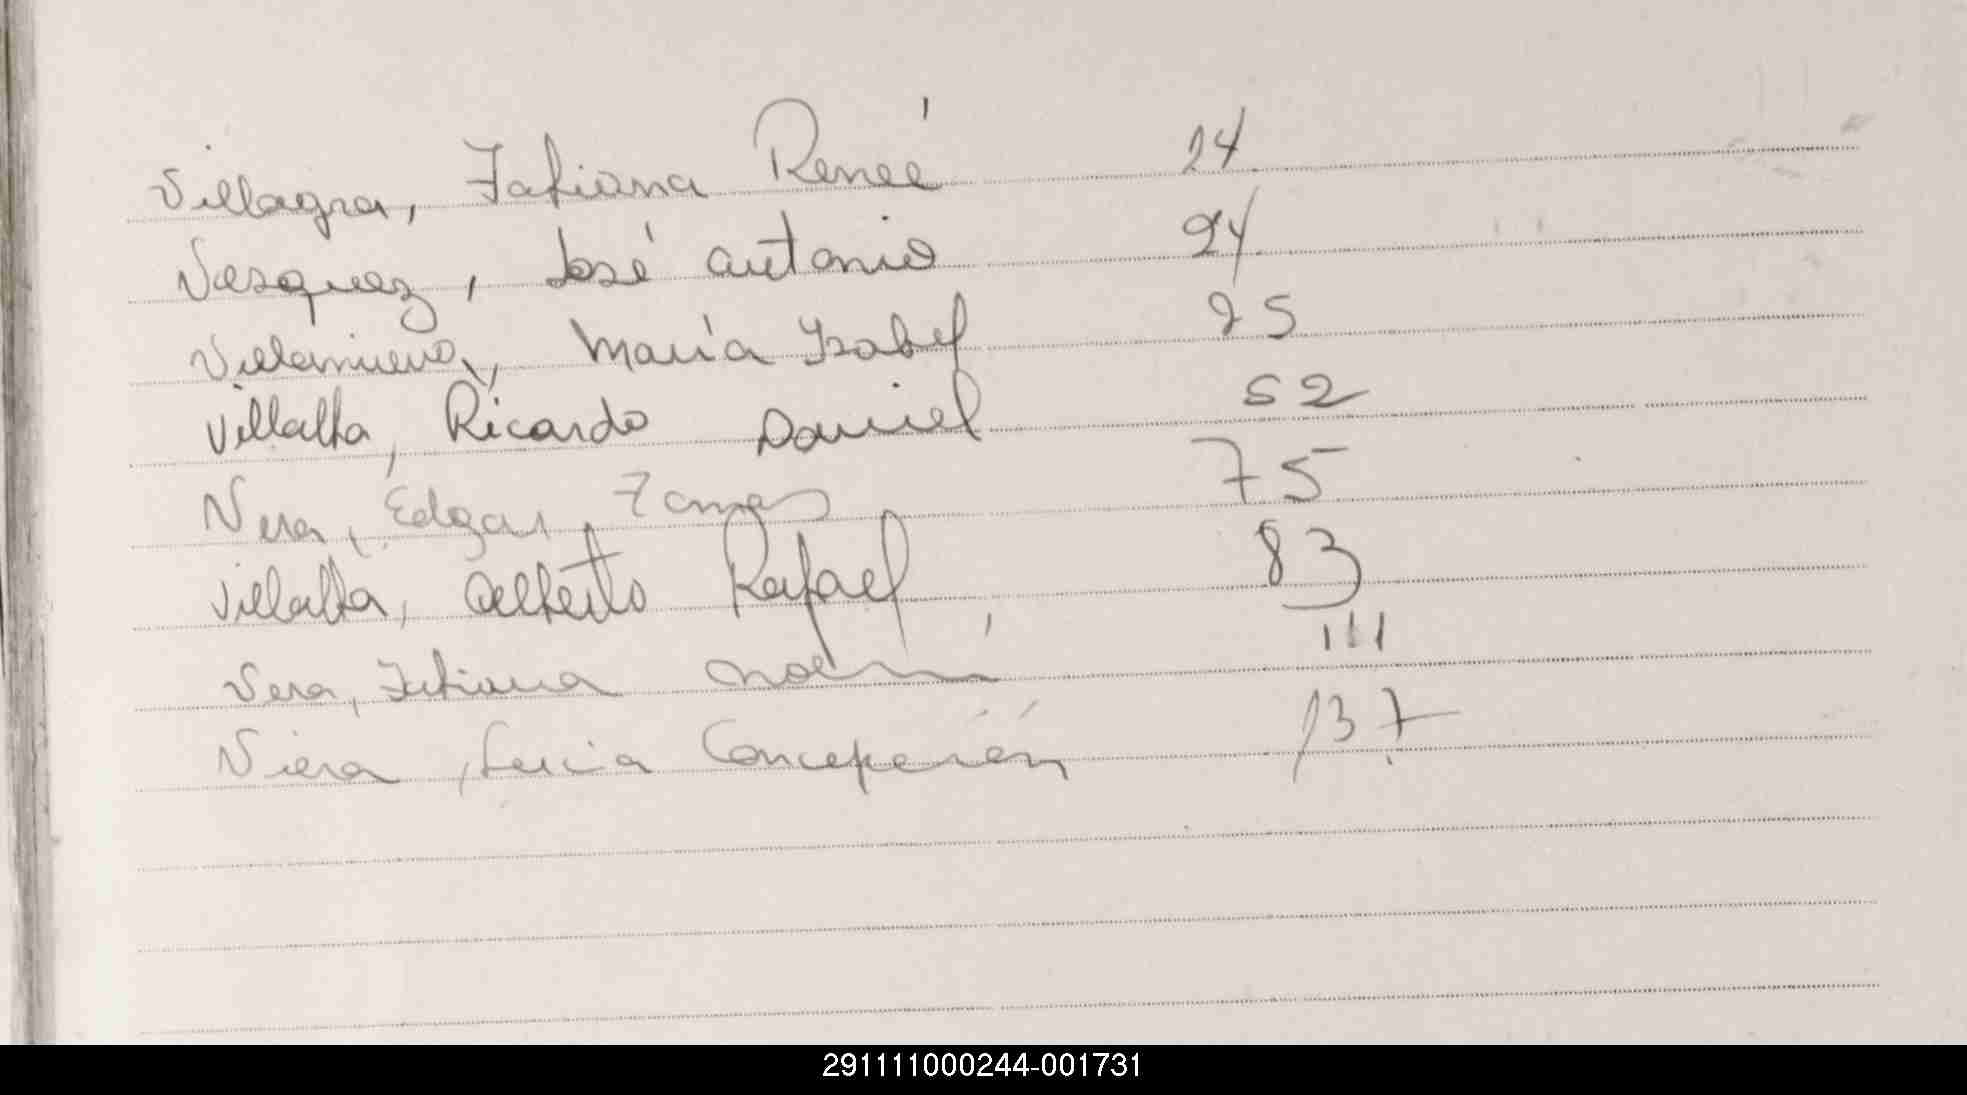 Villagra, Tatiana Reneé 24
Vasquez, José Antonio 24
Villanueva, María Isabel 25
Villalba, Ricardo Daniel 52
Vera, Edgar Tomas 75
Villalba, Alberto Rafael 83
Vera, Tatiana Noemí 111
Viera, Lucia Concepción 137
291111000244-001731